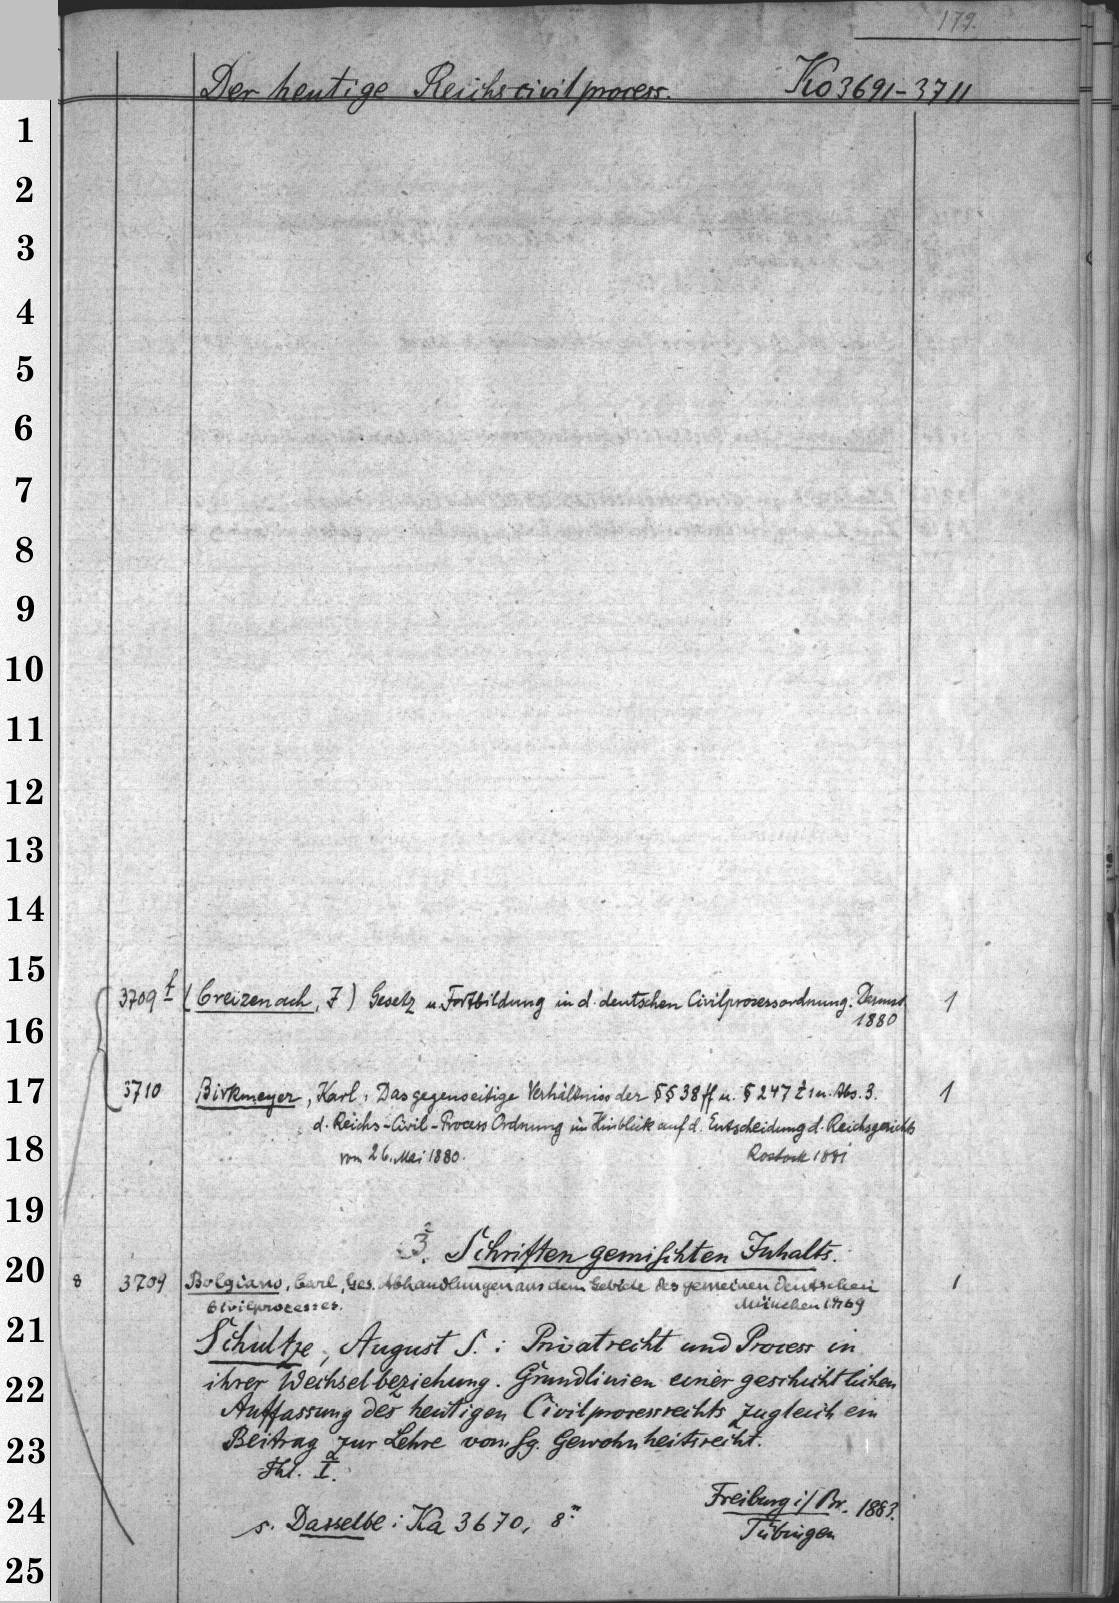 179.
Der heutige Reichscivilprocess. Ko 3691-3711
1
2
3
4
5
6
7
8
9
10
11
12
13
14
15
3709 f (Creizenach, J) Gesetz u. Fortbildung in d. deutschen Civilprozessordnung. 1
1880
16
17
3710 Birkmeyer, Karl: Das gegenseitige Verhältniss der §§ 38 ff u. § 247 Z 1 u. Abs. 3. 1
d. Reichs-Civil-Process Ordnung im Hinblick auf d. Entscheidung d. Reichsgerichts
18
vom 26. Mai 1880. Rostock 1881
19
3. Schriften gemischten Inhalts.
20
8 3709 Bolgiano, Carl, Ges. Abhandlungen aus dem Gebiete des gemeinen Deutschen 1
Civilprocesses. München 1869
21
Schultze, August S.: Privatrecht und Process in
22
ihrer Wechselbeziehung. Grundlinien einer geschichtlichen
Auffassung des heutigen Civilprocessrechts zugleich ein
23
Beitrag zur Lehre vom sg. Gewohnheitsrecht.
Thl. I.
24
Freiburg i/Br. 1883.
s. Dasselbe: Ka 3670, 8° Tübingen
25